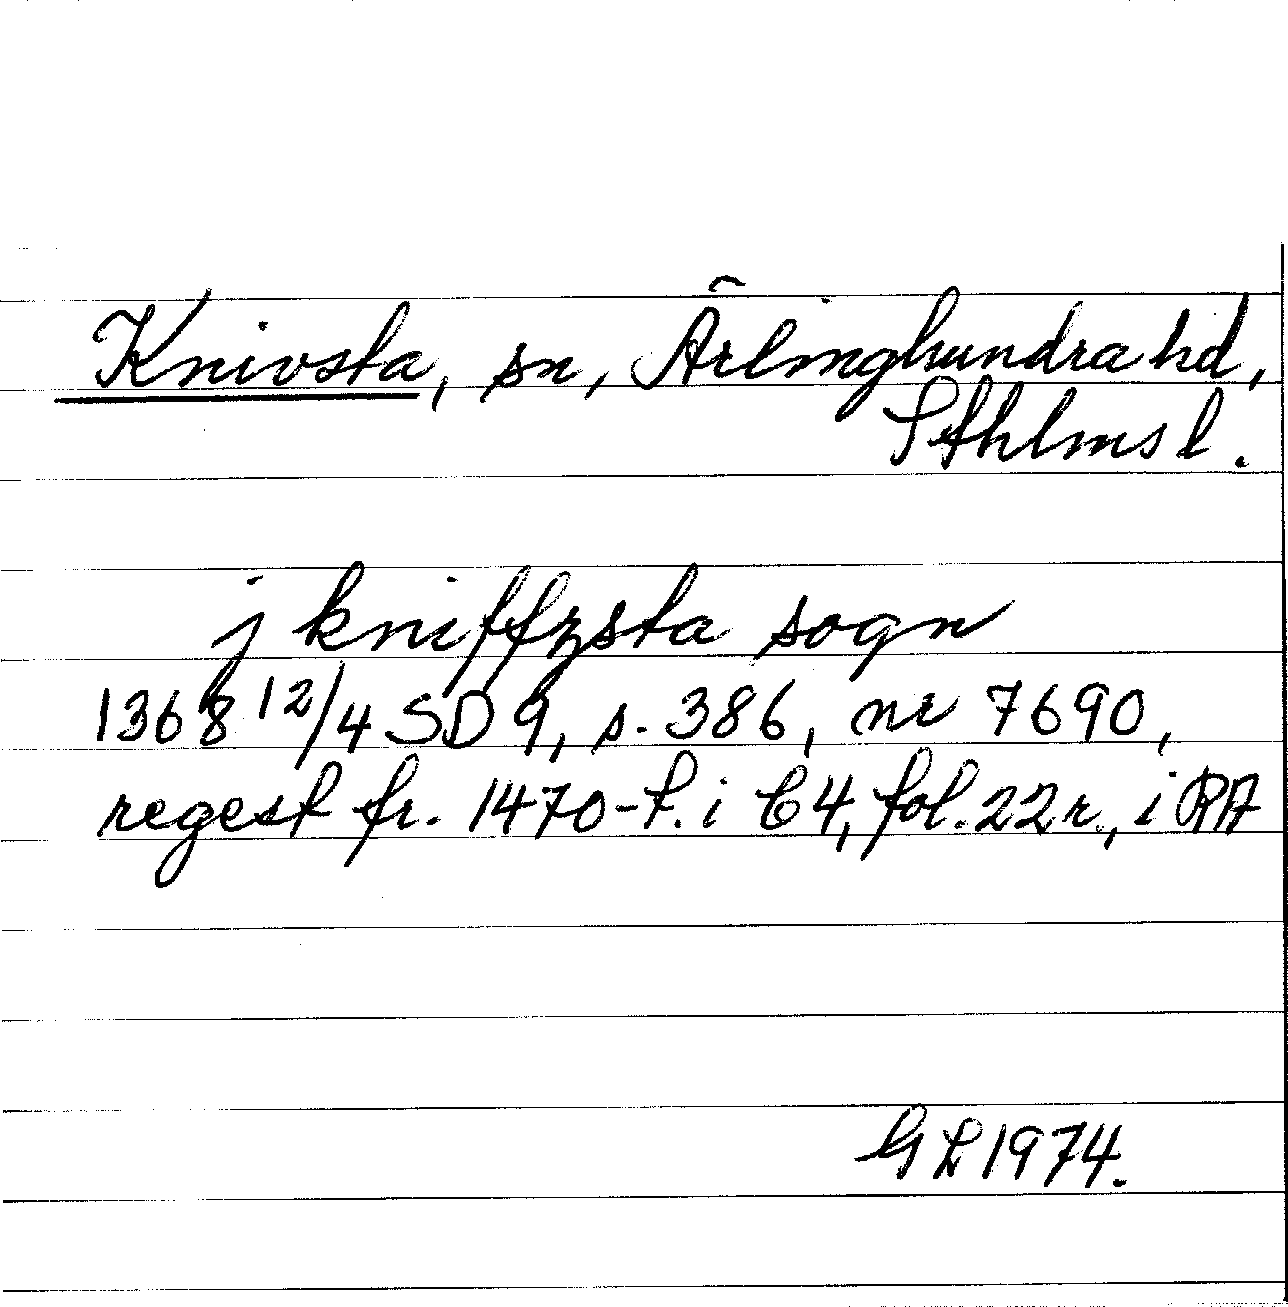 Knivsta, sn, Ärlinghundra hd,
Sthlms l.
j kniffzsta sogn
1368 12/4 SD 9, s. 386, nr 7690,
regest fr. 1470-t. i C4, fol. 22r., i RA
GL 1974.